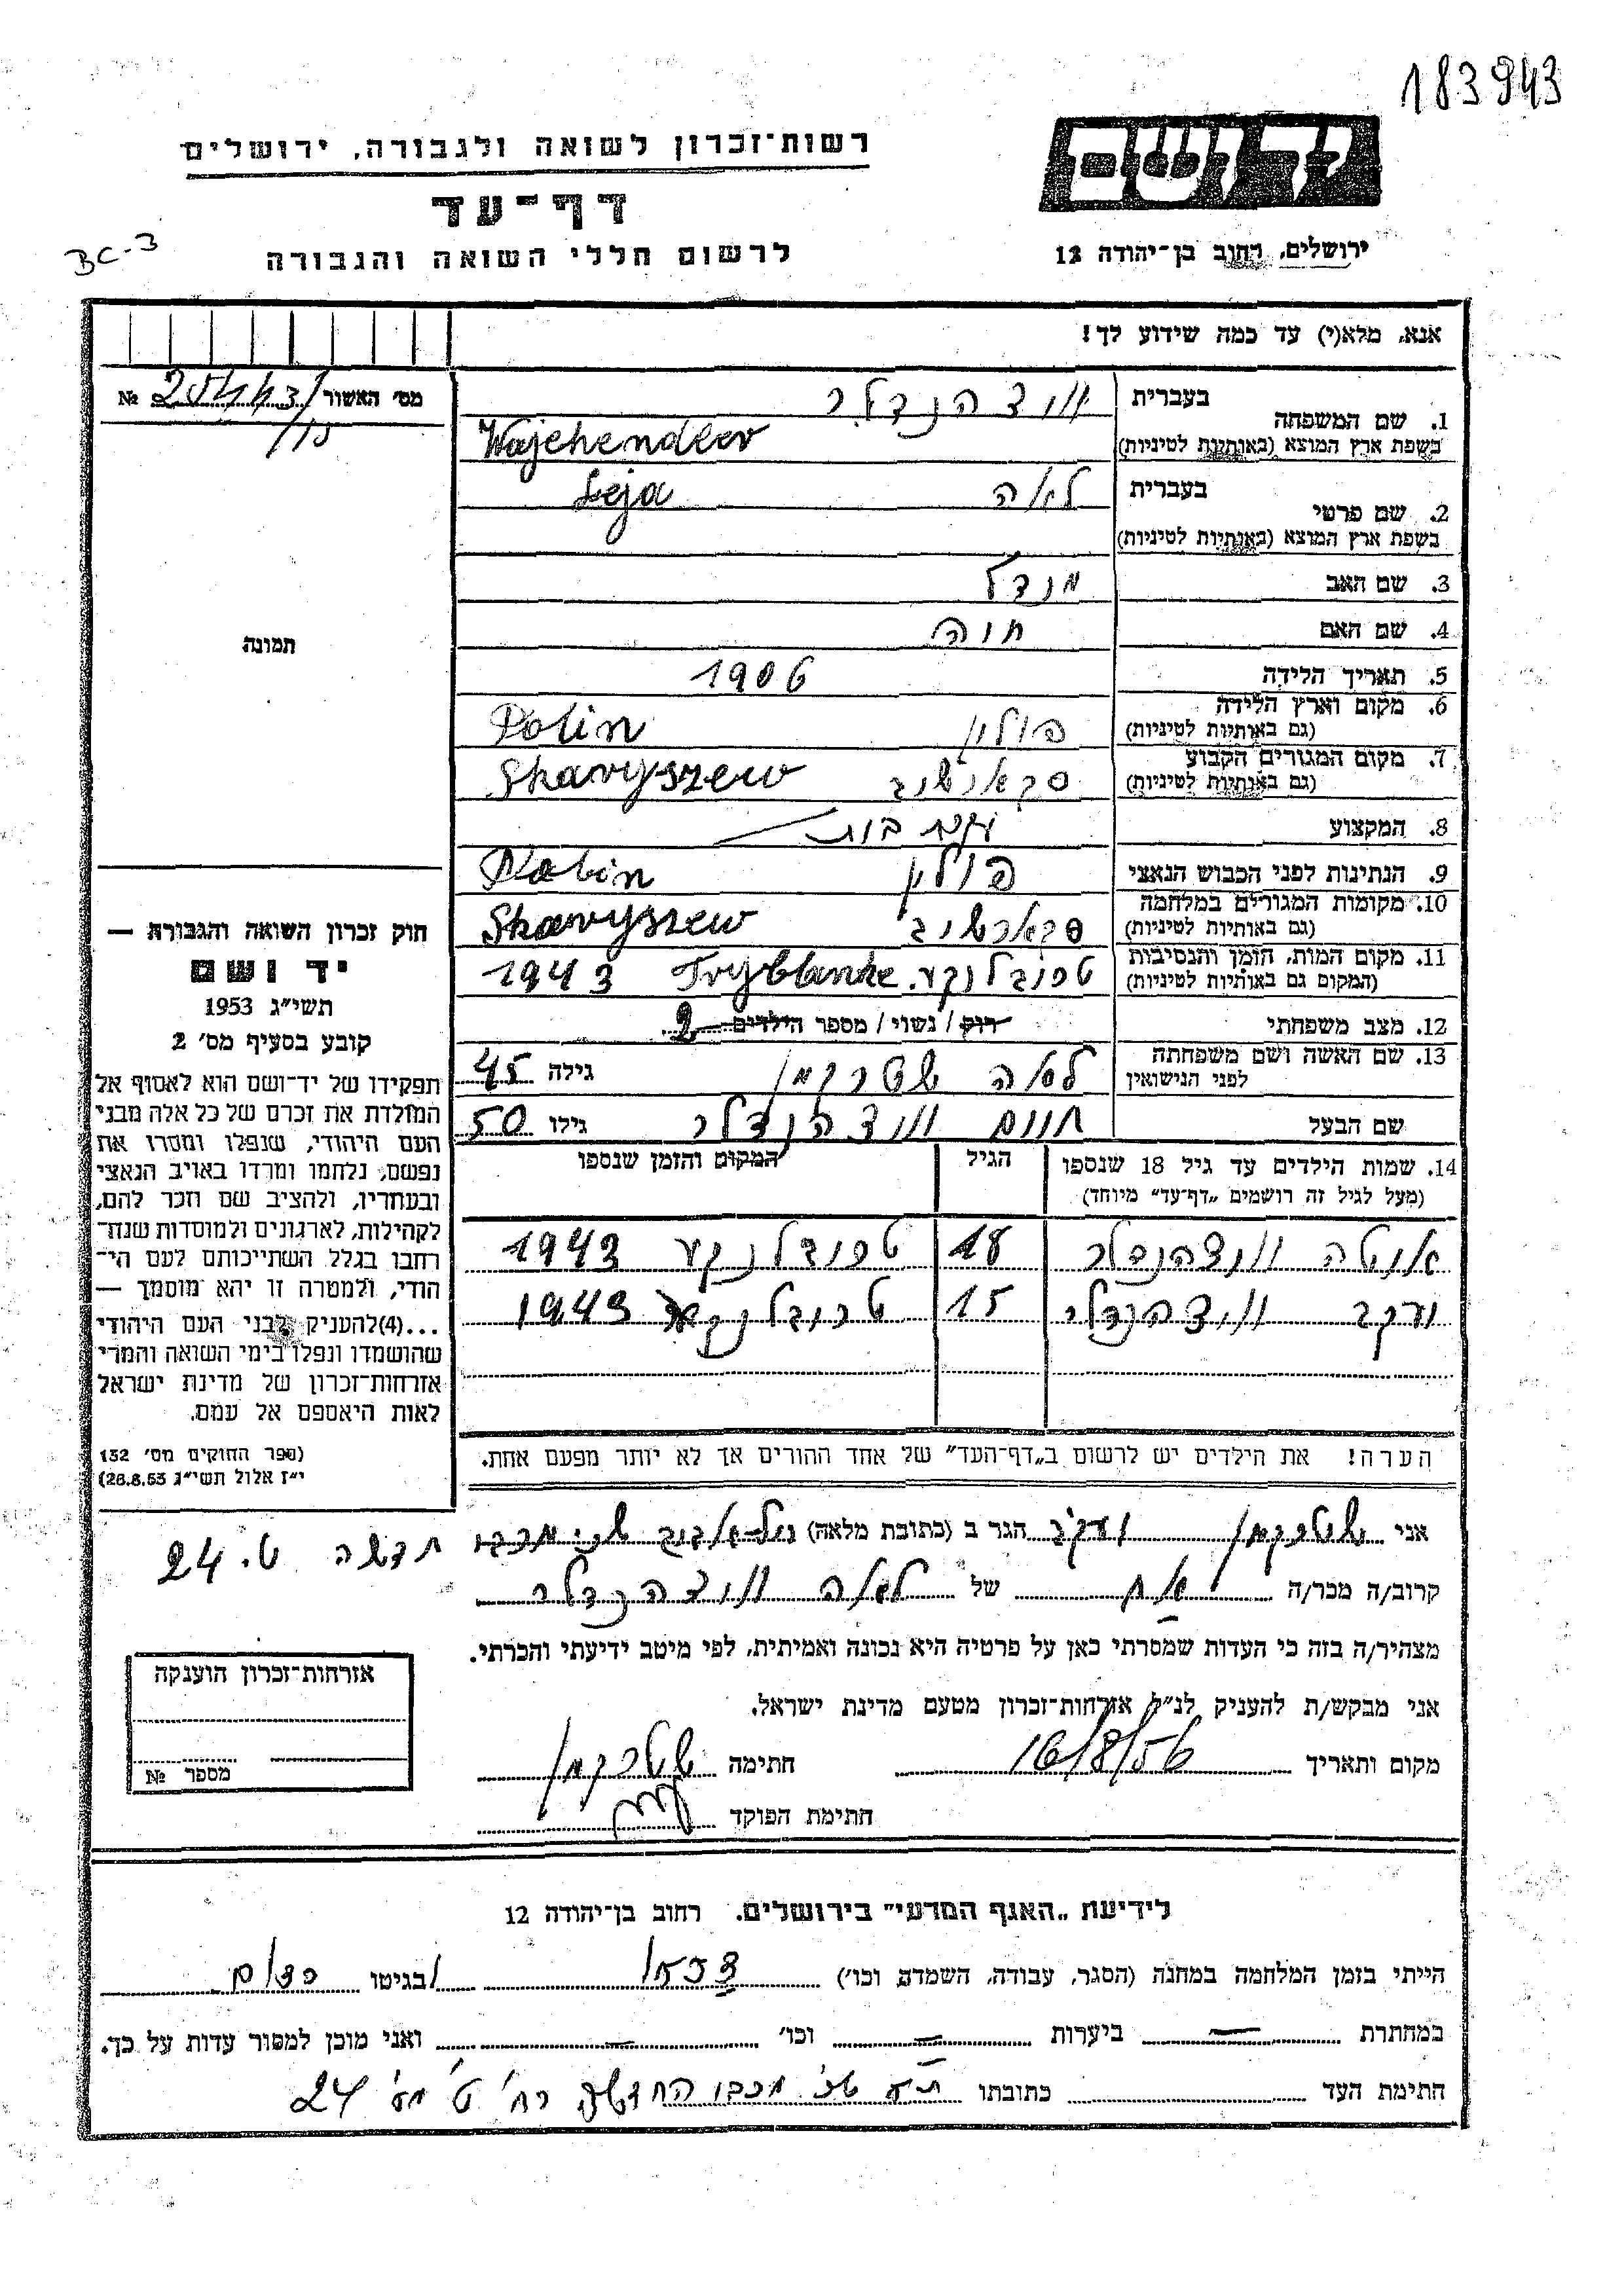 183943
רשות־זכרון לשואה ולגבורה, ירושלים
יד ושם
דף־עד
לרשום חללי השואה והגבורה
BC-3
ירושלים, רחוב בן־יהודה 12
אנא, מלא(י) עד כמה שידוע לך!
מס' האשור №
1. שם המשפחה
בעברית
בשפת ארץ המוצא (באותיות לטיניות)
Wajchendler
2. שם פרטי
בעברית לאה
בשפת ארץ המוצא (באותיות לטיניות)
Leja
3. שם האב מנדל
4. שם האם חוה
5. תאריך הלידה 1906
6. מקום וארץ הלידה
(גם באותיות לטיניות) פולין Polin
7. מקום המגורים הקבוע
(גם באותיות לטיניות) Skaryszew
8. המקצוע
9. הנתינות לפני הכבוש הנאצי פולין Polin
10. מקומות המגורים במלחמה
(גם באותיות לטיניות) Skaryszew
11. מקום המות, הזמן והנסיבות
(המקום גם באותיות לטיניות) טרבלנקע. Tryblanke 1943
12. מצב משפחתי רוק / נשוי / מספר הילדים 2
13. שם האשה ושם משפחתה
לפני הנישואין לאה שטרקמן גילה 45
שם הבעל חיים גילו 50
14. שמות הילדים עד גיל 18 שנספו
(מעל לגיל זה רושמים „דף־עד" מיוחד)
הגיל
המקום והזמן שנספו
18 1943
15 1943
הערה! את הילדים יש לרשום ב„דף־העד" של אחד ההורים אך לא יותר מפעם אחת.
תמונה
חוק זכרון השואה והגבורה —
יד ושם
תשי"ג 1953
קובע בסעיף מס' 2
תפקידו של יד־ושם הוא לאסוף אל
המולדת את זכרם של כל אלה מבני
העם היהודי, שנפלו ומסרו את
נפשם, נלחמו ומרדו באויב הנאצי
ובעוזריו, ולהציב שם וזכר להם,
לקהילות, לארגונים ולמוסדות שנח־
רבו בגלל השתייכותם לעם הי־
הודי, ולמטרה זו יהא מוסמך —
...(4)להעניק לבני העם היהודי
שהושמדו ונפלו בימי השואה והמרי
אזרחות־זכרון של מדינת ישראל
לאות היאספם אל עמם.
(ספר החוקים מס' 132
י"ז אלול תשי"ג 28.8.53)
אני שטרקמן יעקב הגר ב (כתובת מלאה) תל-אביב שכ' מכבי חדשה ט. 24
קרוב/ה מכר/ה אח של לאה
מצהיר/ה בזה כי העדות שמסרתי כאן על פרטיה היא נכונה ואמיתית, לפי מיטב ידיעתי והכרתי.
אני מבקש/ת להעניק לנ"ל אזרחות־זכרון מטעם מדינת ישראל.
מקום ותאריך 16/8/56 חתימה שטרקמן
חתימת הפוקד
אזרחות־זכרון הוענקה
מספר №
לידיעת „האגף המדעי" בירושלים. רחוב בן־יהודה 12
הייתי בזמן המלחמה במחנה (הסגר, עבודה, השמדה, וכו') ובגיטו
במחתרת — ביערות — וכו' — ואני מוכן למסור עדות על כך.
חתימת העד כתובתו ת"א שכ' מכבי החדשה רח' ט' מס' 24